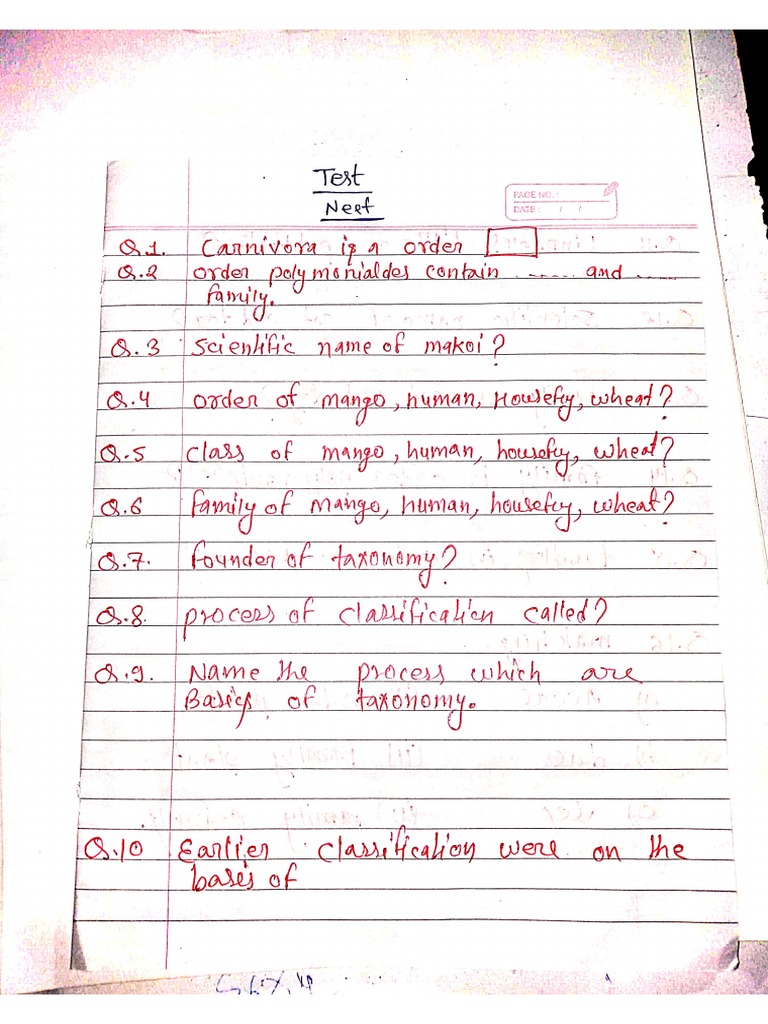 Test
Neet
PAGE NO. :
DATE : / /
Q.1. Carnivora is a order
Q.2 order polymonialdes contain ...... and ......
family.
Q.3 Scientific name of makoi?
Q.4 order of mango, human, Housefly, wheat?
Q.5 class of mango, human, housefly, wheat?
Q.6 family of Mango, human, housefly, wheat?
Q.7. founder of taxonomy?
Q.8. process of classification called?
Q.9. Name the process which are
Basics of taxonomy.
Q.10 Earlier classification were on the
bases of